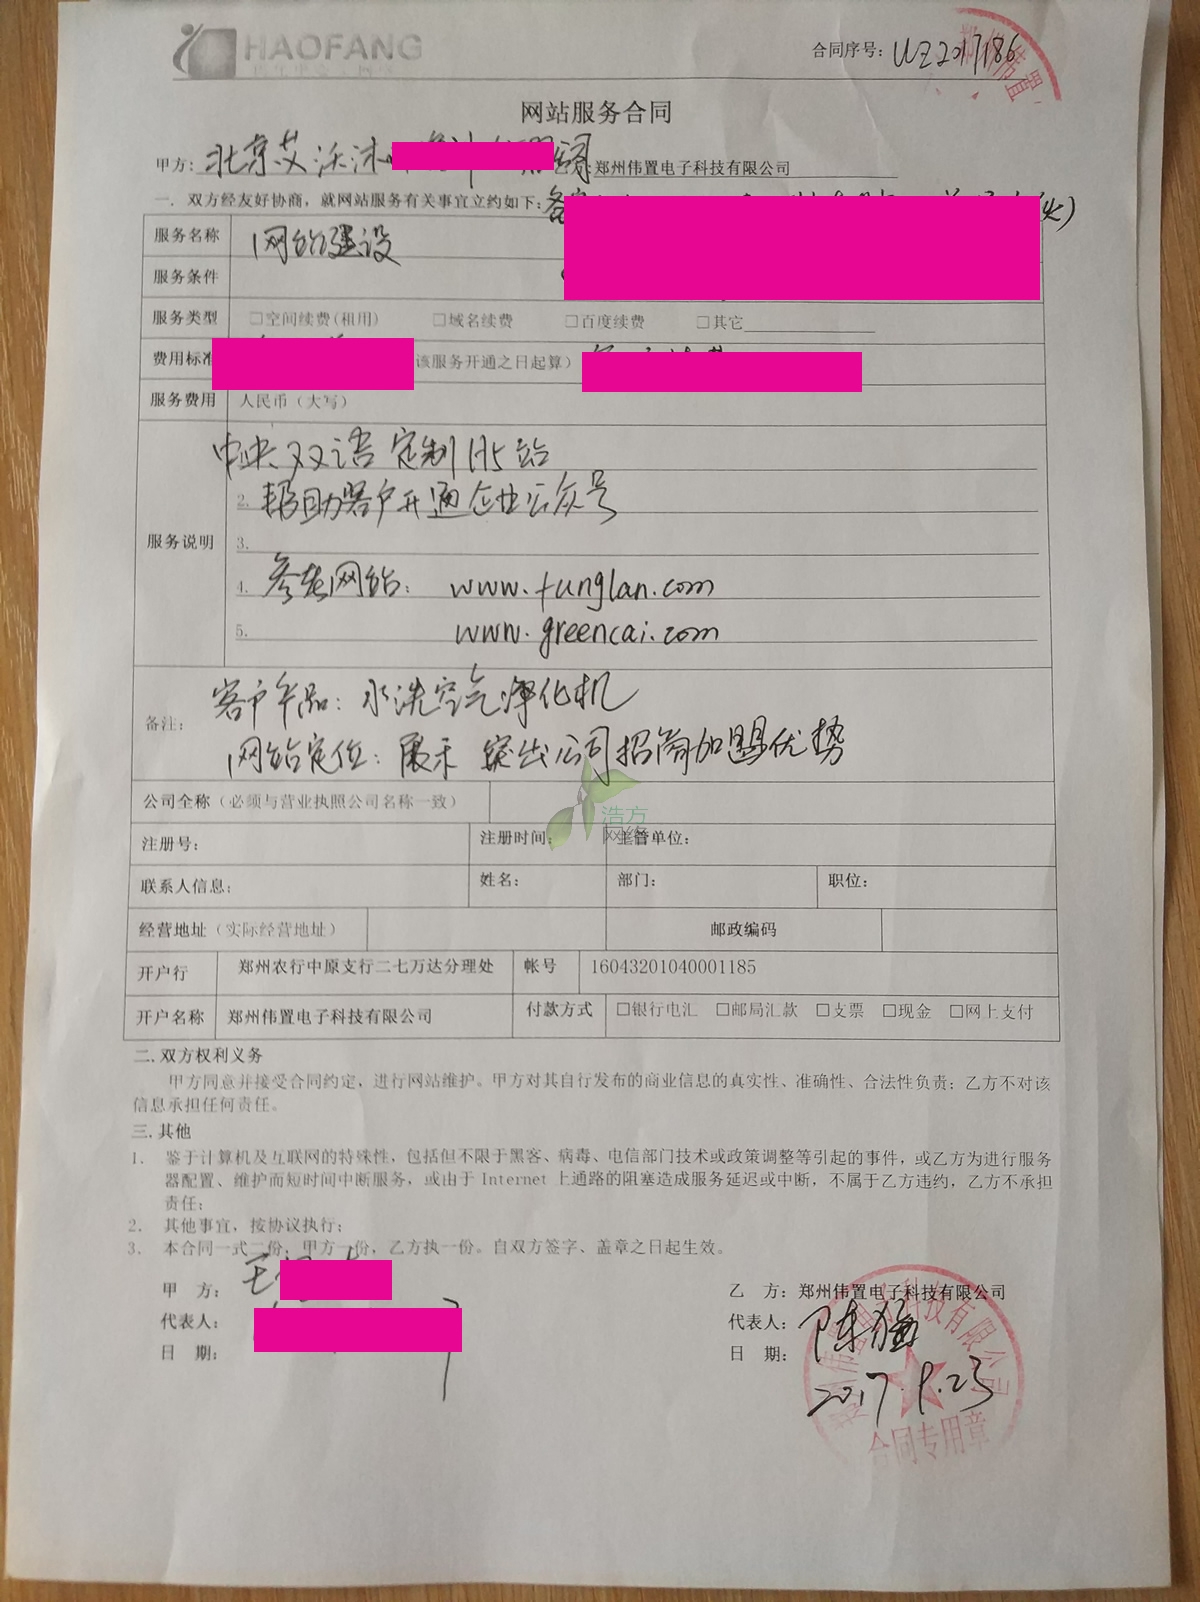 HAOFANG
合同序号: WZ2017186
网站服务合同
甲方: 北京艾沃沐 乙方: 郑州伟置电子科技有限公司
一. 双方经友好协商，就网站服务有关事宜立约如下:
服务名称 网站建设
服务条件
服务类型 □空间续费(租用) □域名续费 □百度续费 □其它
费用标准 该服务开通之日起算）
服务费用 人民币（大写）
服务说明
中英双语定制H5站
2. 帮助客户开通企业公众号
3.
4. 参考网站: www.funglan.com
5. www.greencai.com
备注:
客户产品: 水洗空气净化机
网站定位: 展示 突出公司招商加盟优势
浩方
网络
公司全称（必须与营业执照公司名称一致）
注册号: 注册时间: 主管单位:
联系人信息: 姓名: 部门: 职位:
经营地址（实际经营地址） 邮政编码
开户行 郑州农行中原支行二七万达分理处 帐号 16043201040001185
开户名称 郑州伟置电子科技有限公司 付款方式 □银行电汇 □邮局汇款 □支票 □现金 □网上支付
二. 双方权利义务
甲方同意并接受合同约定，进行网站维护。甲方对其自行发布的商业信息的真实性、准确性、合法性负责；乙方不对该
信息承担任何责任。
三. 其他
1. 鉴于计算机及互联网的特殊性，包括但不限于黑客、病毒、电信部门技术或政策调整等引起的事件，或乙方为进行服务
器配置、维护而短时间中断服务，或由于 Internet 上通路的阻塞造成服务延迟或中断，不属于乙方违约，乙方不承担
责任；
2. 其他事宜，按协议执行；
3. 本合同一式二份，甲方一份，乙方执一份。自双方签字、盖章之日起生效。
甲 方: 王
代表人:
日 期:
乙 方: 郑州伟置电子科技有限公司
代表人: 陈
日 期: 2017.9.23
合同专用章